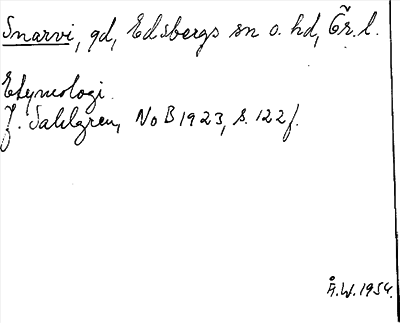 Snarvi, gd, Edsbergs sn o. hd, Ör. l.
Etymologi.
J. Sahlgren, NoB 1923, s. 122 f.
Å.W. 1954.